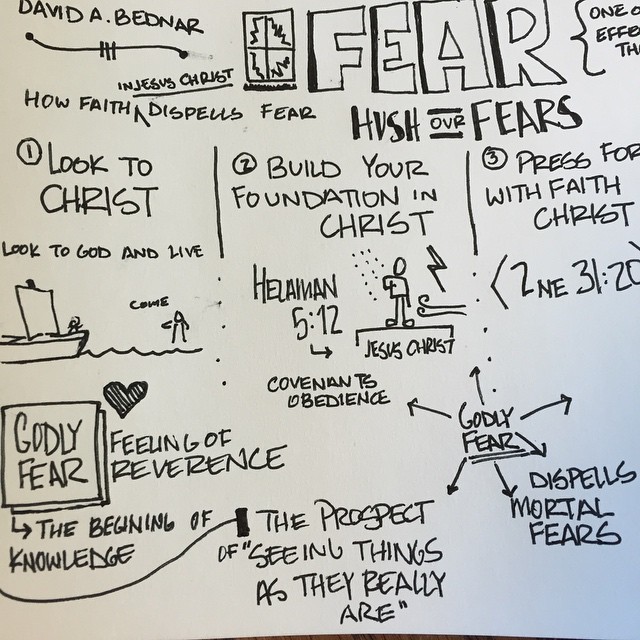 DAVID A. BEDNAR
FEAR
ONE O
EFFE
TH
IN JESUS CHRIST
HOW FAITH DISPELLS FEAR
HUSH OUR FEARS
1 LOOK TO
CHRIST
LOOK TO GOD AND LIVE
COME
2 BUILD YOUR
FOUNDATION IN
CHRIST
HELAMAN
5:12
JESUS CHRIST
COVENANTS
OBEDIENCE
3 PRESS FOR
WITH FAITH
CHRIST
(2 NE 31:20
GODLY
FEAR
FEELING OF
REVERENCE
THE BEGINING OF
KNOWLEDGE
THE PROSPECT
OF "SEEING THINGS
AS THEY REALLY
ARE"
GODLY
FEAR
DISPELLS
MORTAL
FEARS